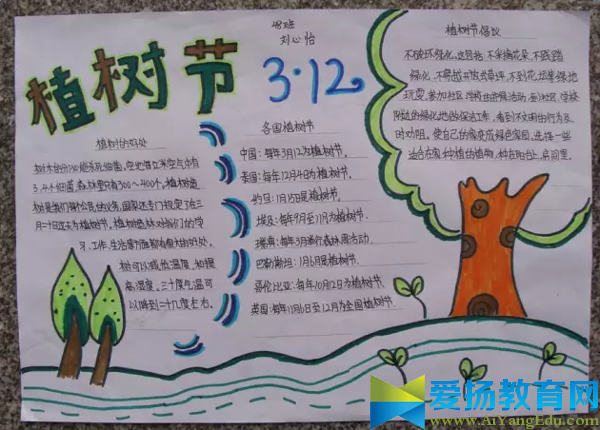 植树节
3·12
刘心怡
植树的好处
树木的分泌能杀死细菌,空地每立米空气中有
3.4万个细菌,森林里只有300~400个,植树造
林是我们每个公民的义务,国家还专门规定了在三
月十二日这天为植树节。植树造林对我们的学
习、工作、生活等方面都有着大的好处。
树可以减低温度,和提
高湿度。三十度气温可
以降到二十几度左右。
各国植树节
中国:每年3月12为植树节。
泰国:每年12月4日为植树节。
约旦:1月15日是植树节。
埃及:每年9月至1月为植树节。
瑞典:每年3月举行森林周活动。
巴勒斯坦:1月5日是植树节。
哥伦比亚:每年10月2为植树节
英国:每年11月6日至12月为全国植树节
植树节倡议
不破坏绿化,这包括:不采摘花朵,不践踏
绿化,不得
不到花坛草绿地
玩耍,参加社区学校
的
活动,到社区、学校
附近的绿化地做保洁工作,看到不文明的行为及
时劝阻,使自己的家变成绿色家园,选择一些
适合在家种植的植物,种在阳台上、房间里。
爱扬教育网
www.AiYangEdu.com